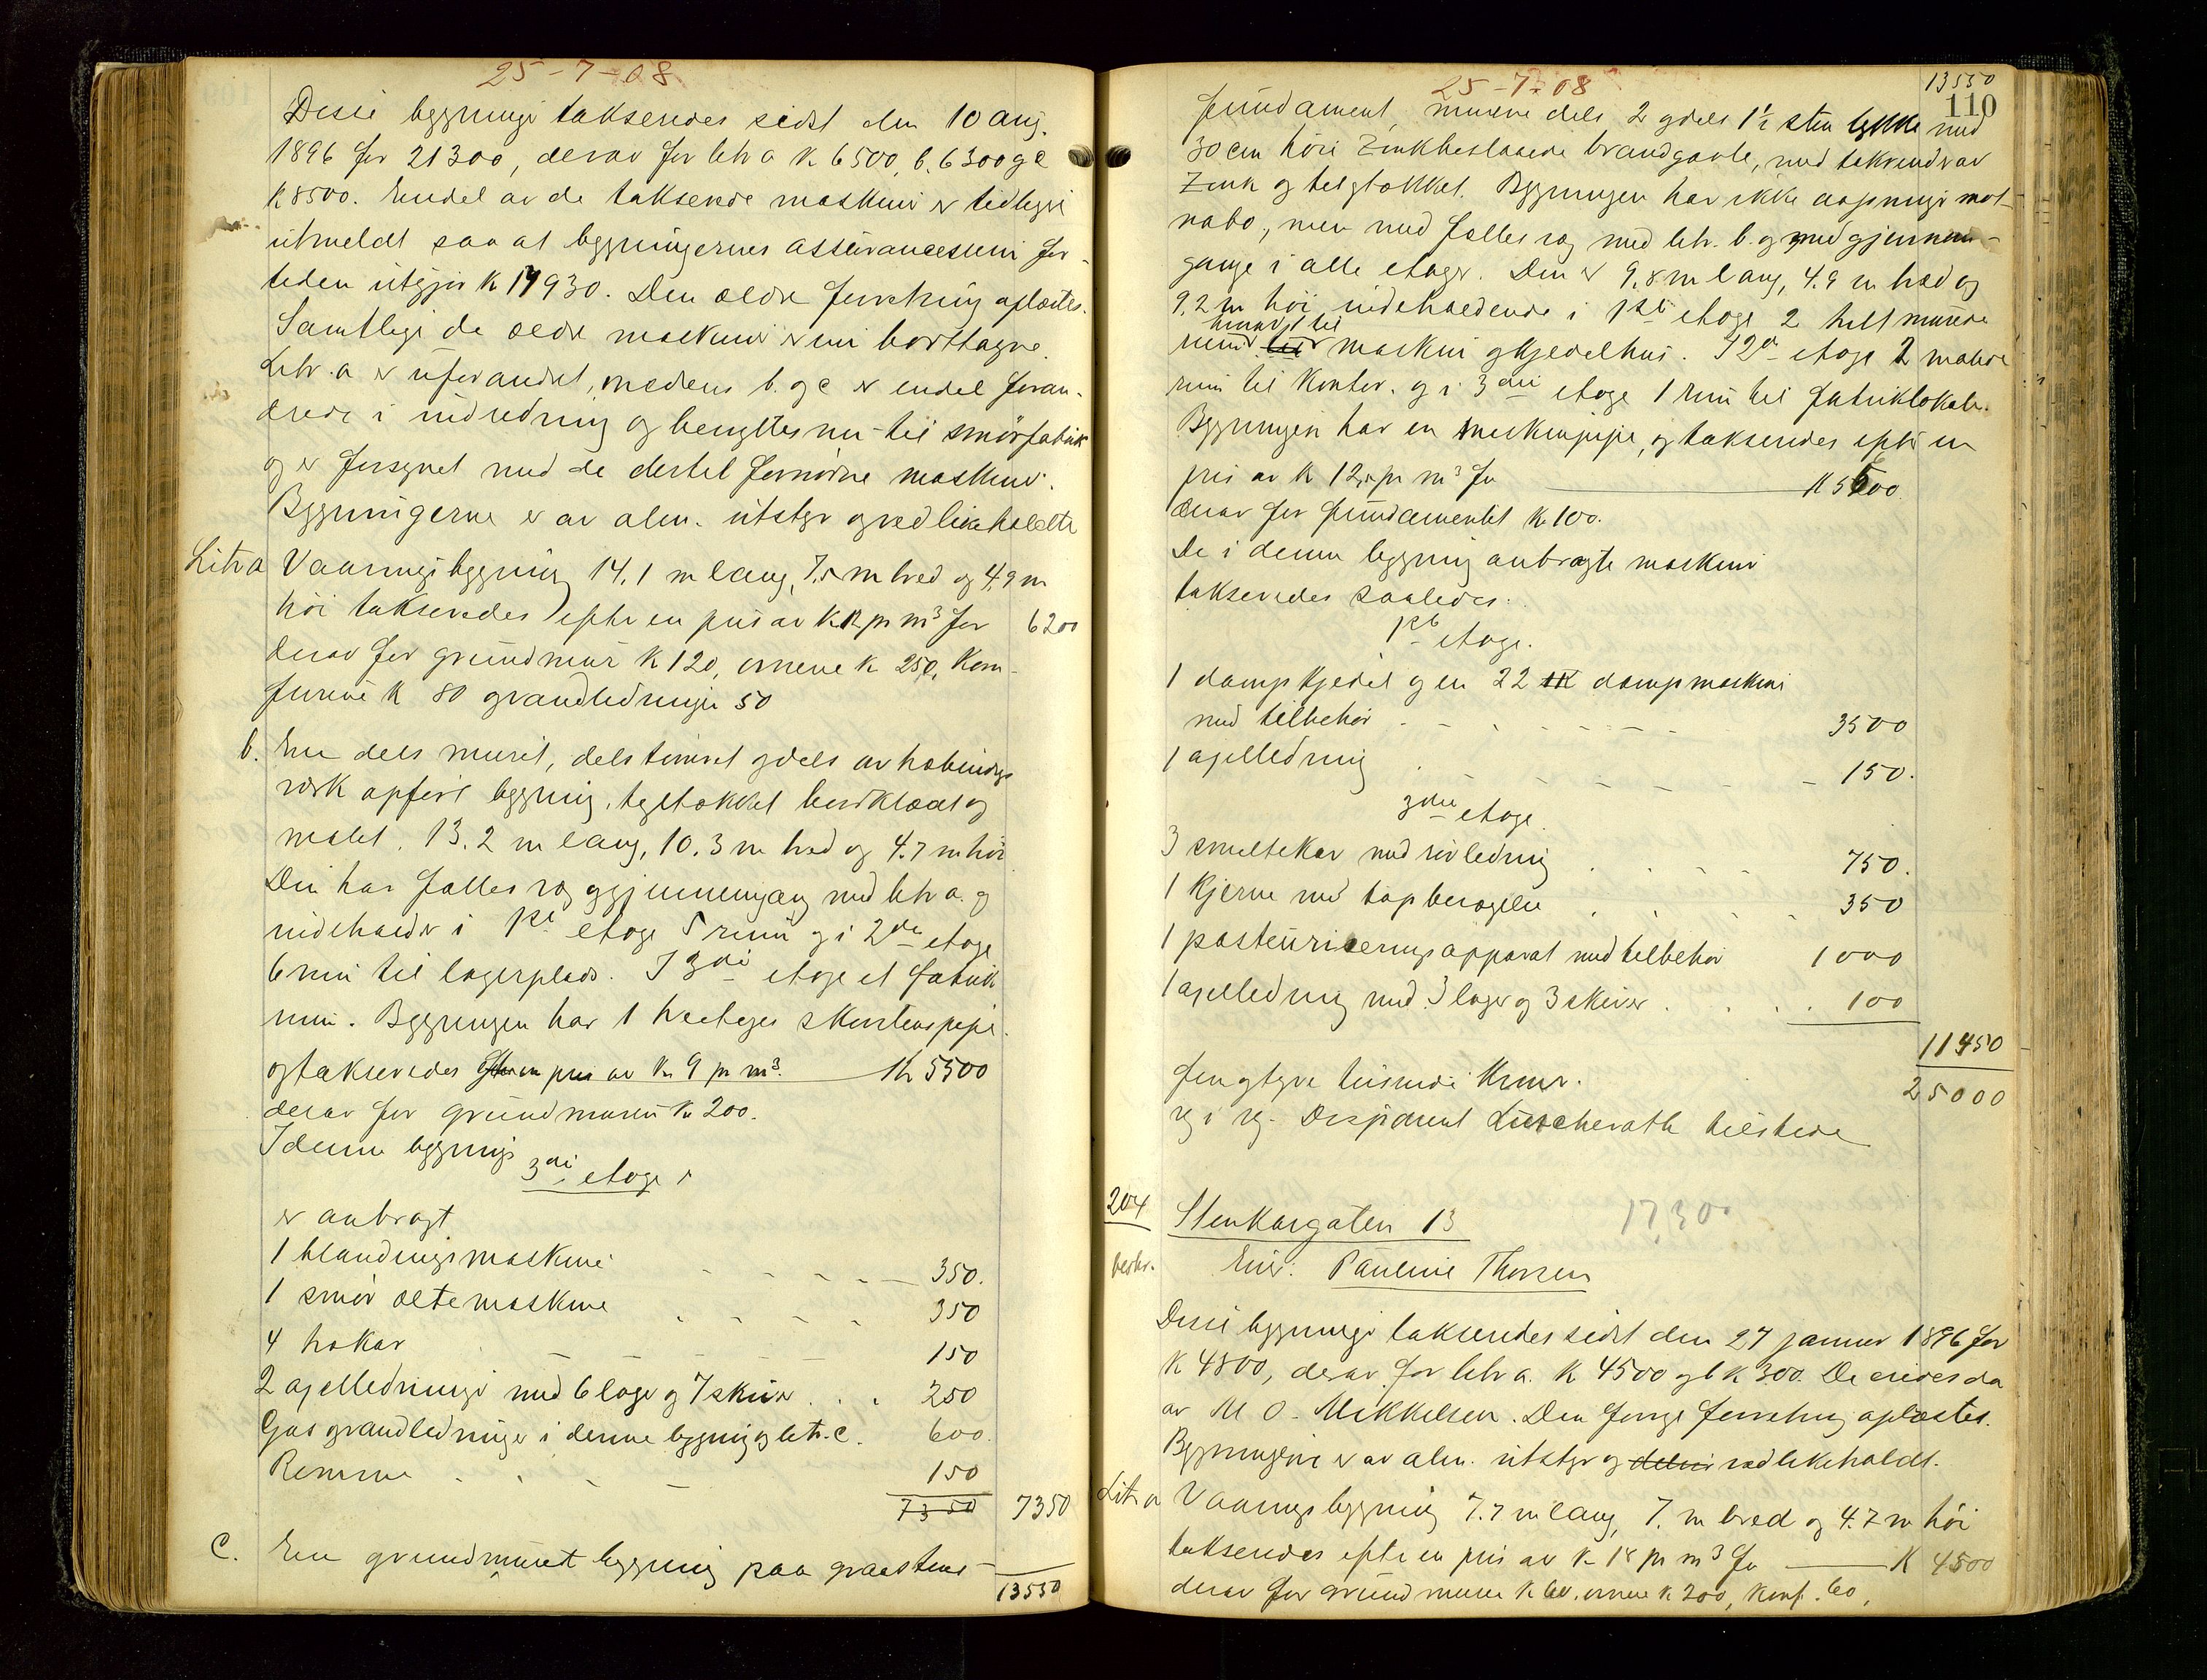 25-7-08
Disse bygninger takseredes sidst den 10 aug.
1896 for 21300, derav for litr a k 6500, b. 6300 og c
k 8500. Endel av de takserede maskiner er tidligere
utmeldt saa at bygningernes assurancesum for-
tiden utgjør k 19930. Den ældre forretning oplæstes.
Samtlige de ældre maskiner er nu borttagne.
Litr. a er uforandret, medens b. og c er endel foran-
drede i indredning og benyttes nu til smørfabrik
og er forsynet med de dertil fornødne maskiner.
Bygningerne er av alm. utstyr og vedlikeholdte
Litr a Vaaningsbygning 14.1 m lang, 7,5 m bred og 4,9 m
høi takseredes efter en pris av k 12 pr m³ for 6200
derav for grundmur k 120, ovnene k 250, kom-
furene k 80 og vandledninger 50
b. En dels muret, dels tømret og dels av bindings
verk opført bygning, teglstækket bordklædt og
malet. 13.2 m lang, 10.3 m bred og 4.7 m høi
Den har fælles væg og gjennemgang med litr a. og
indeholder i 1ste etage 5 rum og i 2den etage
6 rum til lagerplads. I 3die etage et fabrik
rum. Bygningen har 1 skorstenspipe
og takseredes efter en pris av k 9 pr m³. Kr 5500
derav for grundmuren k 200.
I denne bygnings
3die etage
er anbragt
1 blandingsmaskine 350.
1 smør æltemaskine 350
4 kar 150
2 axelledninger med 6 lager og 7 skiver . . . 250
Gas og vandledninger i denne bygning og litr. c. 600.
Remme 150
7350 7350
c. En grundmuret bygning paa graastens-
13550
25-7-08
13550
110
fundament, murene dels 2 og dels 1½ sten tykke med
30 cm høie Zinkbeslaaede brandgavle, med takrender av
Zink og teglstækket. Bygningen har ikke aapninger mot
nabo, men med fælles væg med litr. b. og med gjennem-
gange i alle etager. Den er 9,8 m lang, 4.9 m bred og
9,2 m høi indeholdende i 1ste etage 2 helt murede
rum til maskin og kjedelhus. I 2den etage 2 malede
rum til kontor. og i 3die etage 1 rum til fabriklokale.
Bygningen har en maskinpipe, og takseredes efter en
pris av k 12,5 pr m³ for K 5600
derav for fundamentet k 100.
De i denne bygning anbragte maskiner
takseredes saaledes:
1ste etage.
1 dampkjedel og en 22 HK dampmaskine
med tilbehør 3500
1 axelledning 150.
3die etage
3 smeltekar med rørledning 750.
1 kjerne med tapberøgelse 350
1 pasteuriseringsapparat med tilbehør 1000
1 axelledning med 3 lager og 3 skiver . . . . 100
11450
fem og tyve tusinde kroner. 25000
Disponent tilstede
204 Stenkargaten 13 17300
beskr. Eier: Pauline Thorsen
Disse bygninger takseredes sidst den 27 januar 1896 for
k 4800, derav for litr a. k 4500 og b k 300. De eiedes da
av M O. Mikkelsen. Den forrige forretning oplæstes.
Bygningene er av alm. utstyr og vedlikeholdt.
Litr a Vaaningsbygning 7.7 m lang, 7. m bred og 4.7 m høi
takseredes efter en pris av k 18 pr m³ for K 4500
derav for grundmuren k 60, ovnene k 200, komf. 60,